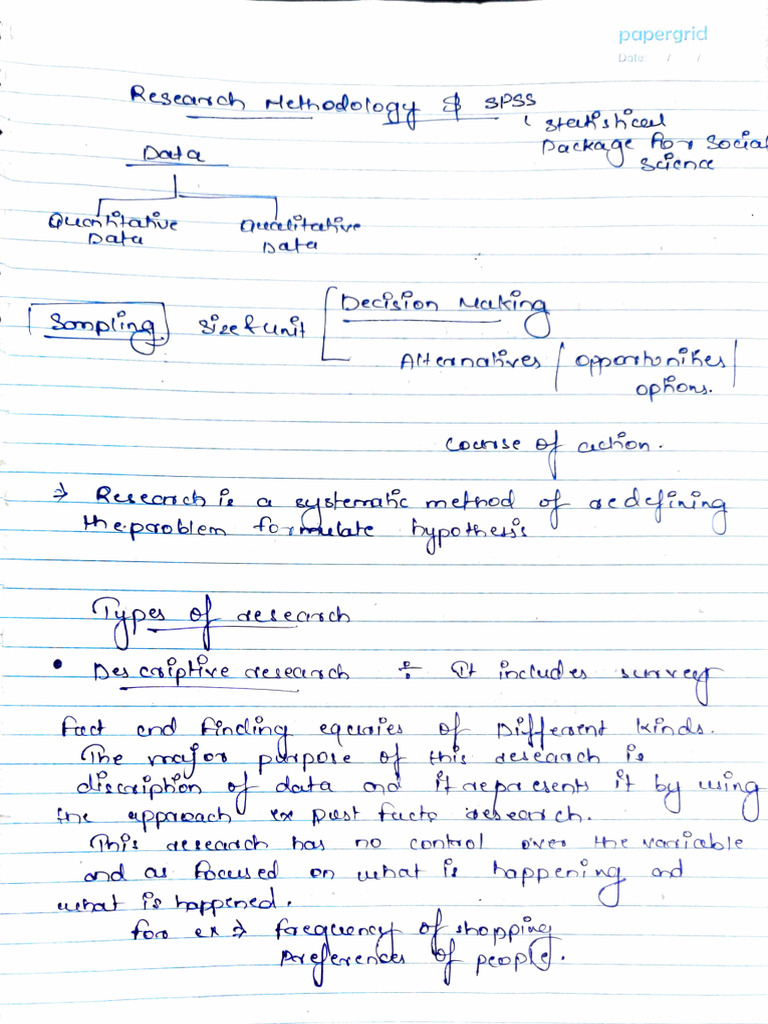 papergrid
Date: / /
Research Methodology & SPSS
Statistical
Package for Social
Science
Data
Quantitative Data
Qualitative Data
Sampling size & unit
Decision Making
Alternatives / opportunities / options.
course of action.
⇒ Research is a systematic method of redefining
the problem formulate hypothesis
Types of research
• Descriptive research ÷ It includes survey
fact and finding equries of Different kinds.
The major purpose of this research is
discription of data and it represents it by using
the approach ex post facto research.
This research has no control over the variable
and as focused on what is happening and
what is happened.
for ex ⇒ frequency of shopping
Preferences of people.